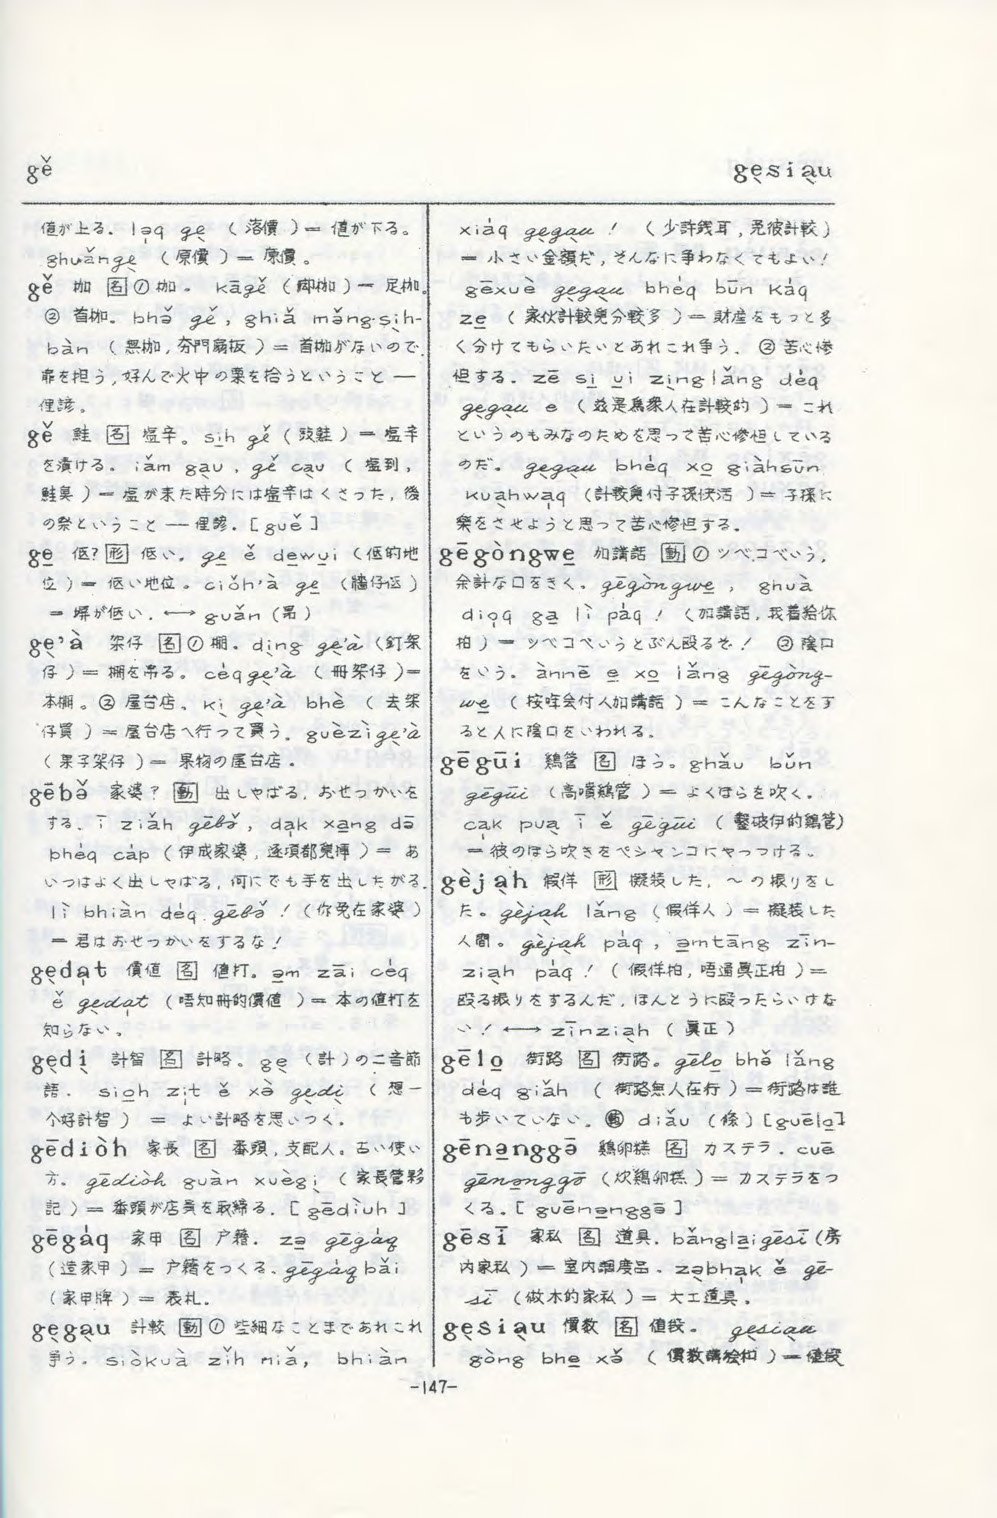 gě
gẹsiạu
値が上る。lạq gẹ (落價)= 値が下る。
ghuǎngẹ (原價)= 原價。
gě 枷 [名]①枷。 kāgě (脚枷)= 足枷。
②首枷。bhə̌ gě, ghiǎ mǎng·sịh-
bàn (無枷,夯門扇板)= 首枷がないので
扉を担う,好んで火中の栗を拾うということ —
俚諺。
gě 鮭 [名] 塩辛。sịh gě (豉鮭)= 塩辛
を漬ける。iǎm gạu, gě cạu (塩到,
鮭臭)= 塩が来た時分には塩辛はくさった,後
の祭ということ — 俚諺。[guě]
ge̲ 低? [形] 低い。ge̲ ě de̲wui (低的地
位)= 低い地位。ciǒh'à ge̲ (牆仔低)
= 塀が低い。⟷ guǎn (懸)
gẹ'à 架仔 [名]①棚。dịng gẹ'à (釘架
仔)= 棚を吊る。cēqgẹ'à (冊架仔)=
本棚。②屋台店。kị gẹ'à bhè (去架
仔買)= 屋台店へ行って買う。guèzigẹ'à
(果子架仔)= 果物の屋台店。
gēbə̌ 家婆? [動] 出しゃばる,おせっかいを
する。ī ziǎh gēbə̌, dạk xạng dō
bhẹq cáp (伊成家婆,逐項都覔揷)= あ
いつはよく出しゃばる,何にでも手を出したがる。
lì bhiàn dėq gēbə̌! (你免在家婆)
= 君はおせっかいをするな!
gẹdạt 價値 [名] 値打。əm zāi cēq
ě gẹdạt (唔知冊的價値)= 本の値打を
知らない。
gẹdị 計智 [名] 計略。gẹ (計)の二音節
語。siọh zịt ě xə̀ gẹdị (想一
个好計智) = よい計略を思いつく。
gēdiòh 家長 [名] 番頭,支配人。古い使い
方。gēdiòh guàn xuègị (家長管夥
記)= 番頭が店員を取締る。[gēdiùh]
gēgáq 家甲 [名] 戸籍。zə gēgáq
(造家甲)= 戸籍をつくる。gēgáqbǎi
(家甲牌)= 表札。
gẹgạu 計較 [動]①些細なことまであれこれ
争う。siòkuà zǐh niā, bhiàn
xiáq gẹgạu! (少許銭耳,免彼計較)
= 小さい金額だ,そんなに争わなくてもよい!
gēxuè gẹgạu bhėq būn káq
ze̲ (家伙計較覔分較多)= 財産をもっと多
く分けてもらいたいとあれこれ争う。②苦心惨
憺する。zē sị ụi zịnglǎng dėq
gẹgạu e (玆是爲衆人在計較的)= これ
というのもみなのためを思って苦心惨憺している
のだ。gẹgạu bhėq xo̲ giàhsūn
kuạhwạq (計較覔付子孫快活)= 子孫に
楽をさせようと思って苦心惨憺する。
gēgòngwe̲ 加講話 [動]①ツベコベいう,
余計な口をきく。gēgòngwe̲, ghuà
diọq gạ lì páq! (加講話,我着給你
拍)= ツベコベいうとぶん殴るぞ! ②陰口
をいう。ànnē e̲ xo̲ lǎng gēgòng-
we̲ (按哖会付人加講話)= こんなことをす
ると人に陰口をいわれる。
gēgùi 鶏管 [名] ほう。ghǎu būn
gēgùi (高噴鶏管)= よくほらを吹く。
cạk pụa ī ě gēgùi (鑿破伊的鶏管)
= 彼のほら吹きをペシャンコにやっつける。
gèjạh 假佯 [形] 擬装した,〜の振りをし
た。gèjạh lǎng (假佯人)= 擬装した
人間。gèjạh páq, əmtāng zīn-
ziạh páq! (假佯拍,唔通眞正拍)=
殴る振りをするんだ,ほんとうに殴ったらいけな
い! ⟷ zīnziạh (眞正)
gēlo̲ 街路 [名] 街路。gēlo̲ bhə̌ lǎng
dėq giǎh (街路無人在行)= 街路は誰
も歩いていない。diǎu (條)[guēlo̲]
gēnənggə̄ 鶏卵糕 [名] カステラ。cuē
gēnənggə̄ (炊鶏卵糕)= カステラをつ
くる。[guēnənggə̄]
gēsī 家私 [名] 道具。bǎnglạigēsī (房
内家私)= 室内調度品。zəbhạk ě gē-
sī (做木的家私)= 大工道具。
gẹsiạu 價数 [名] 値段。gẹsiạu
gòng bhe̲ xə̌ (價数講𣍐和)= 値段
-147-